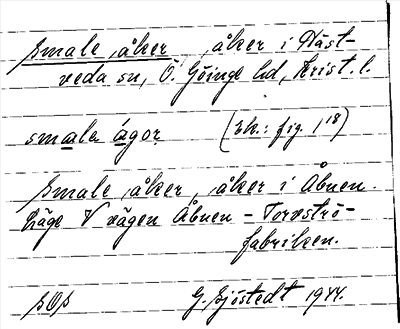 Smale åker, åker i Näst-
veda sn, Ö. Göinge hd, Krist. l.
smala ágor (Sk.: fig. 1¹⁸)
Smale åker, åker i Åbuen.
Läge V vägen Åbuen - Torvströ-
fabriken.
G. Sjöstedt 1944.